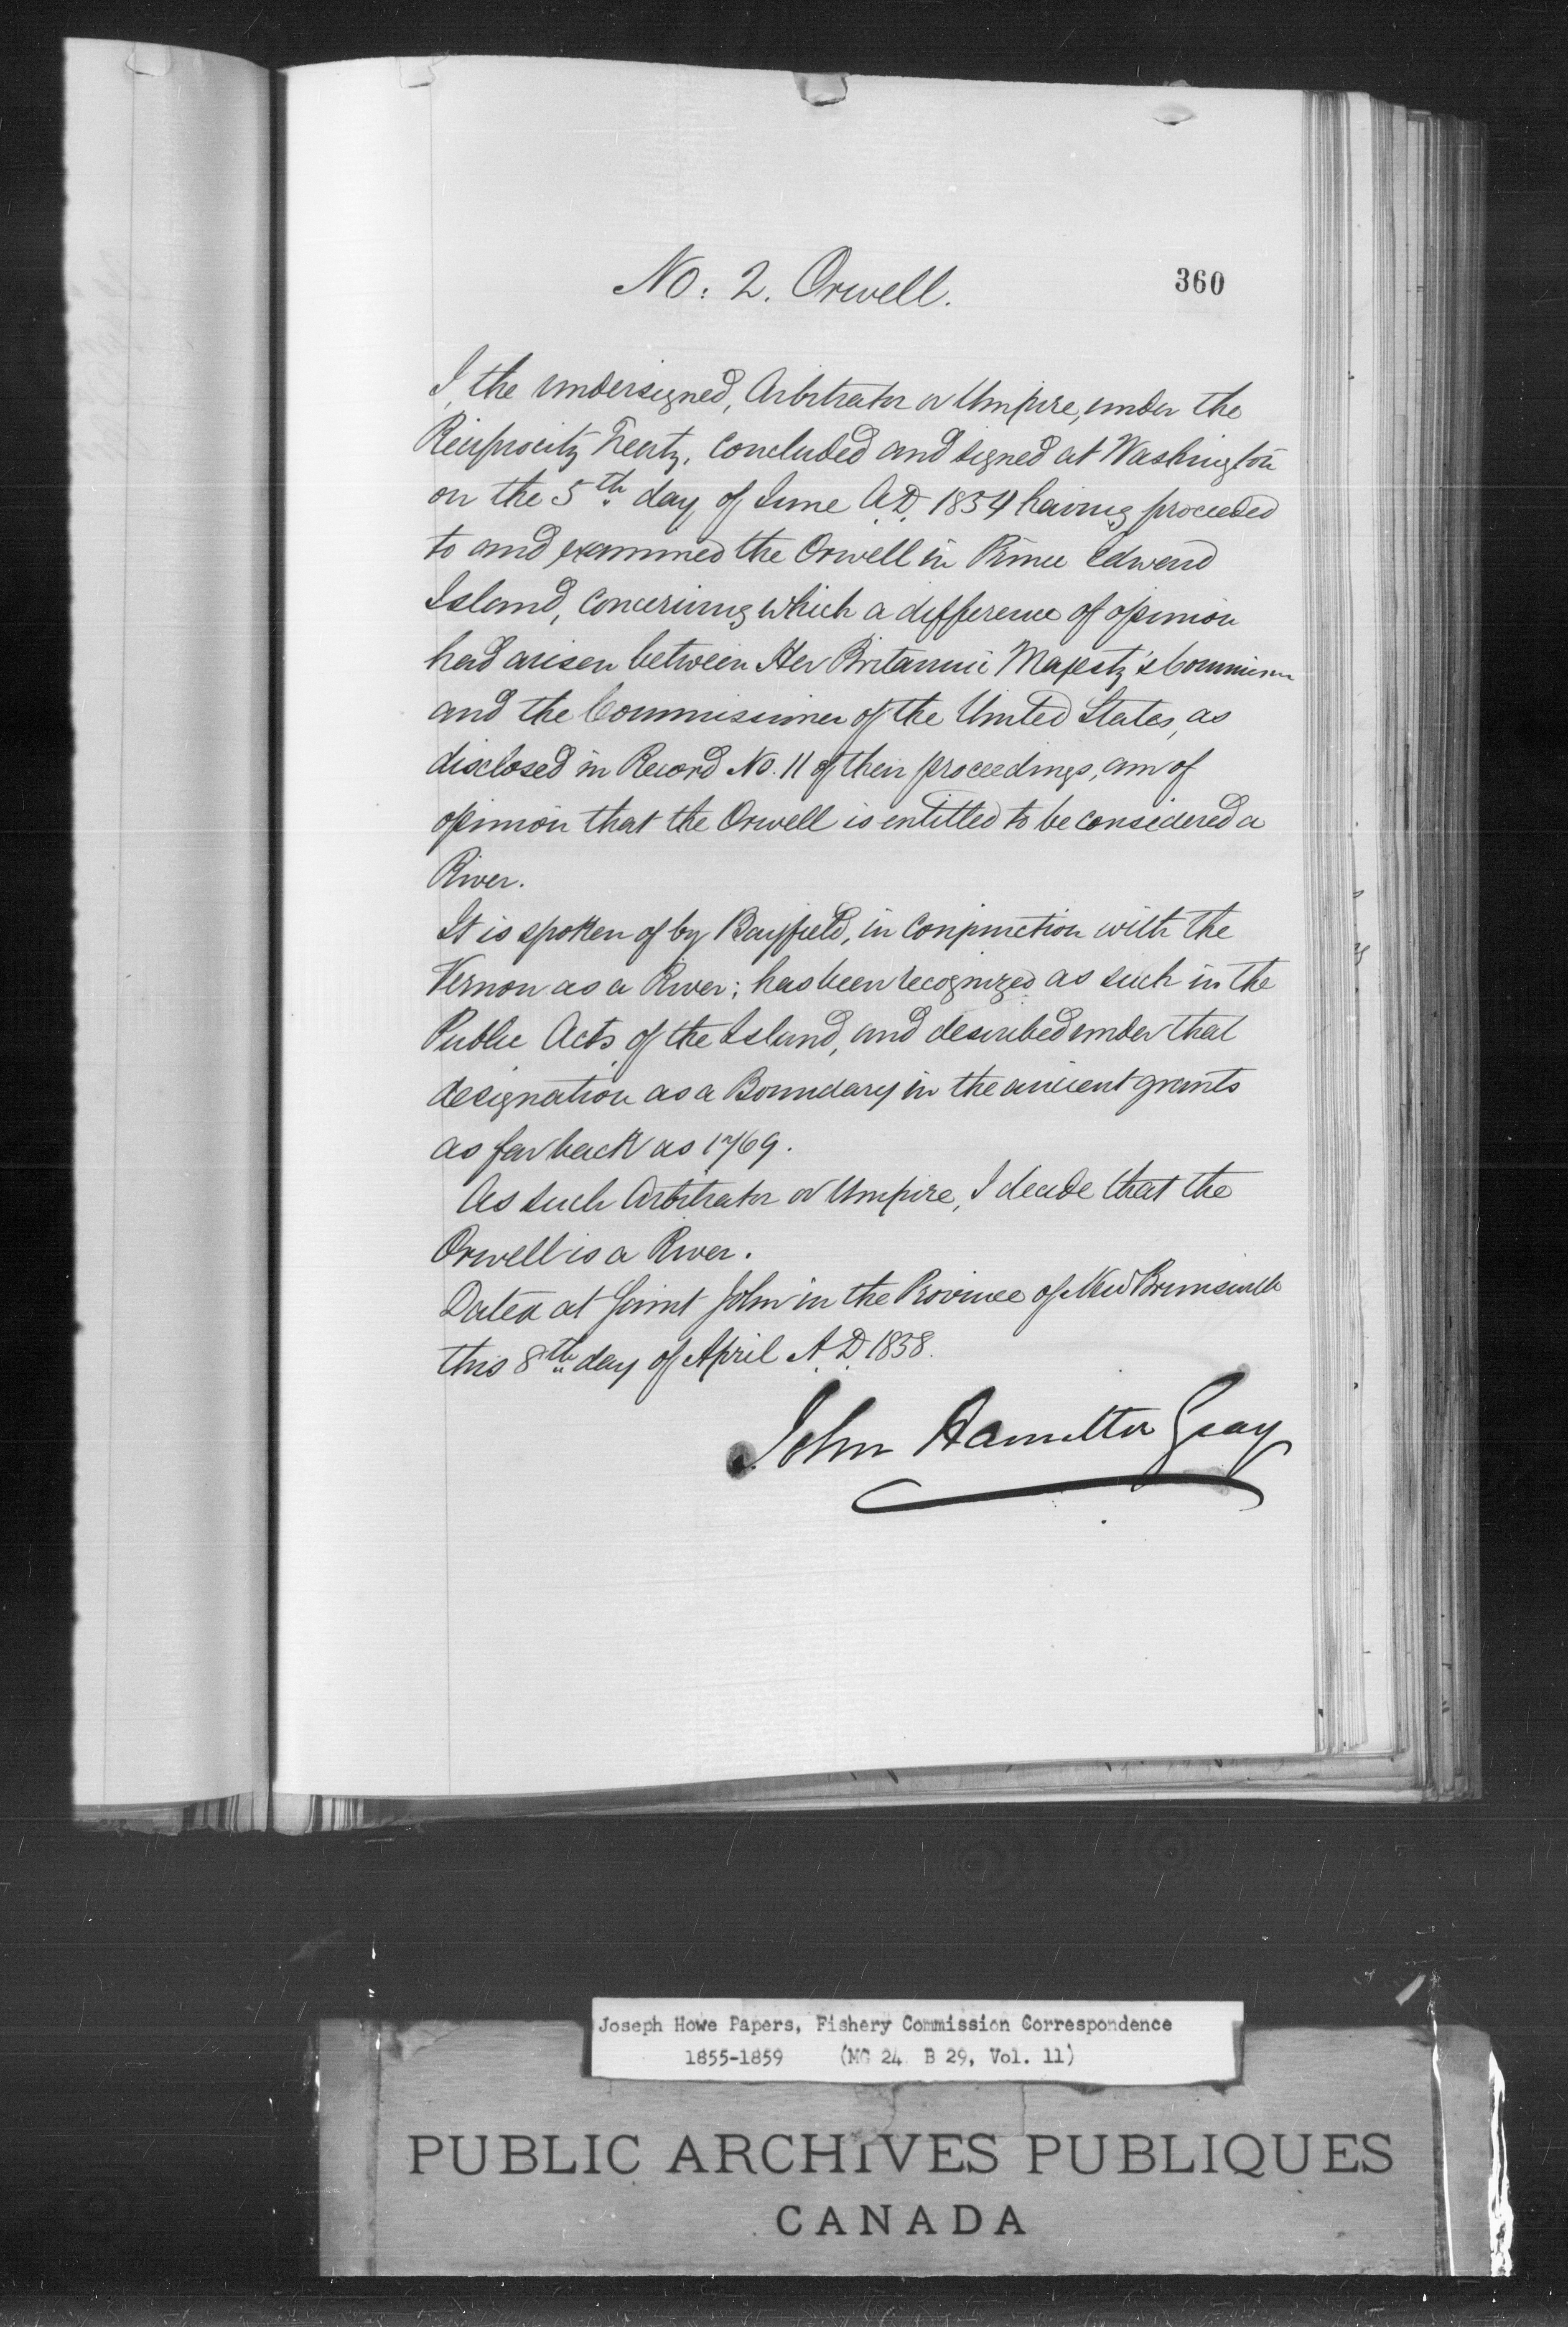 No: 2. Orwell.
360
I, the undersigned, Arbitrator or Umpire, under the
Reciprocity Treaty, concluded and signed at Washington
on the 5th day of June A.D. 1854 having proceeded
to and examined the Orwell in Prince Edward
Island, concerning which a difference of opinion
had arisen between Her Britannic Majesty's
and the Commissioner of the United States, as
disclosed in Record No. 11 of their proceedings, am of
opinion that the Orwell is entitled to be considered a
River.
It is spoken of by Bayfield, in conjunction with the
Vernon as a River; has been recognized as such in the
Public Acts of the Island, and described under that
designation as a Boundary in the ancient grants
as far back as 1769.
As such Arbitrator or Umpire, I decide that the
Orwell is a River.
Dated at Saint John in the Province of New Brunswick
this 8th day of April A.D. 1858.
John Hamilton Gray
Joseph Howe Papers, Fishery Commission Correspondence
1855-1859 (MG 24 B 29, Vol. 11)
PUBLIC ARCHIVES PUBLIQUES
CANADA